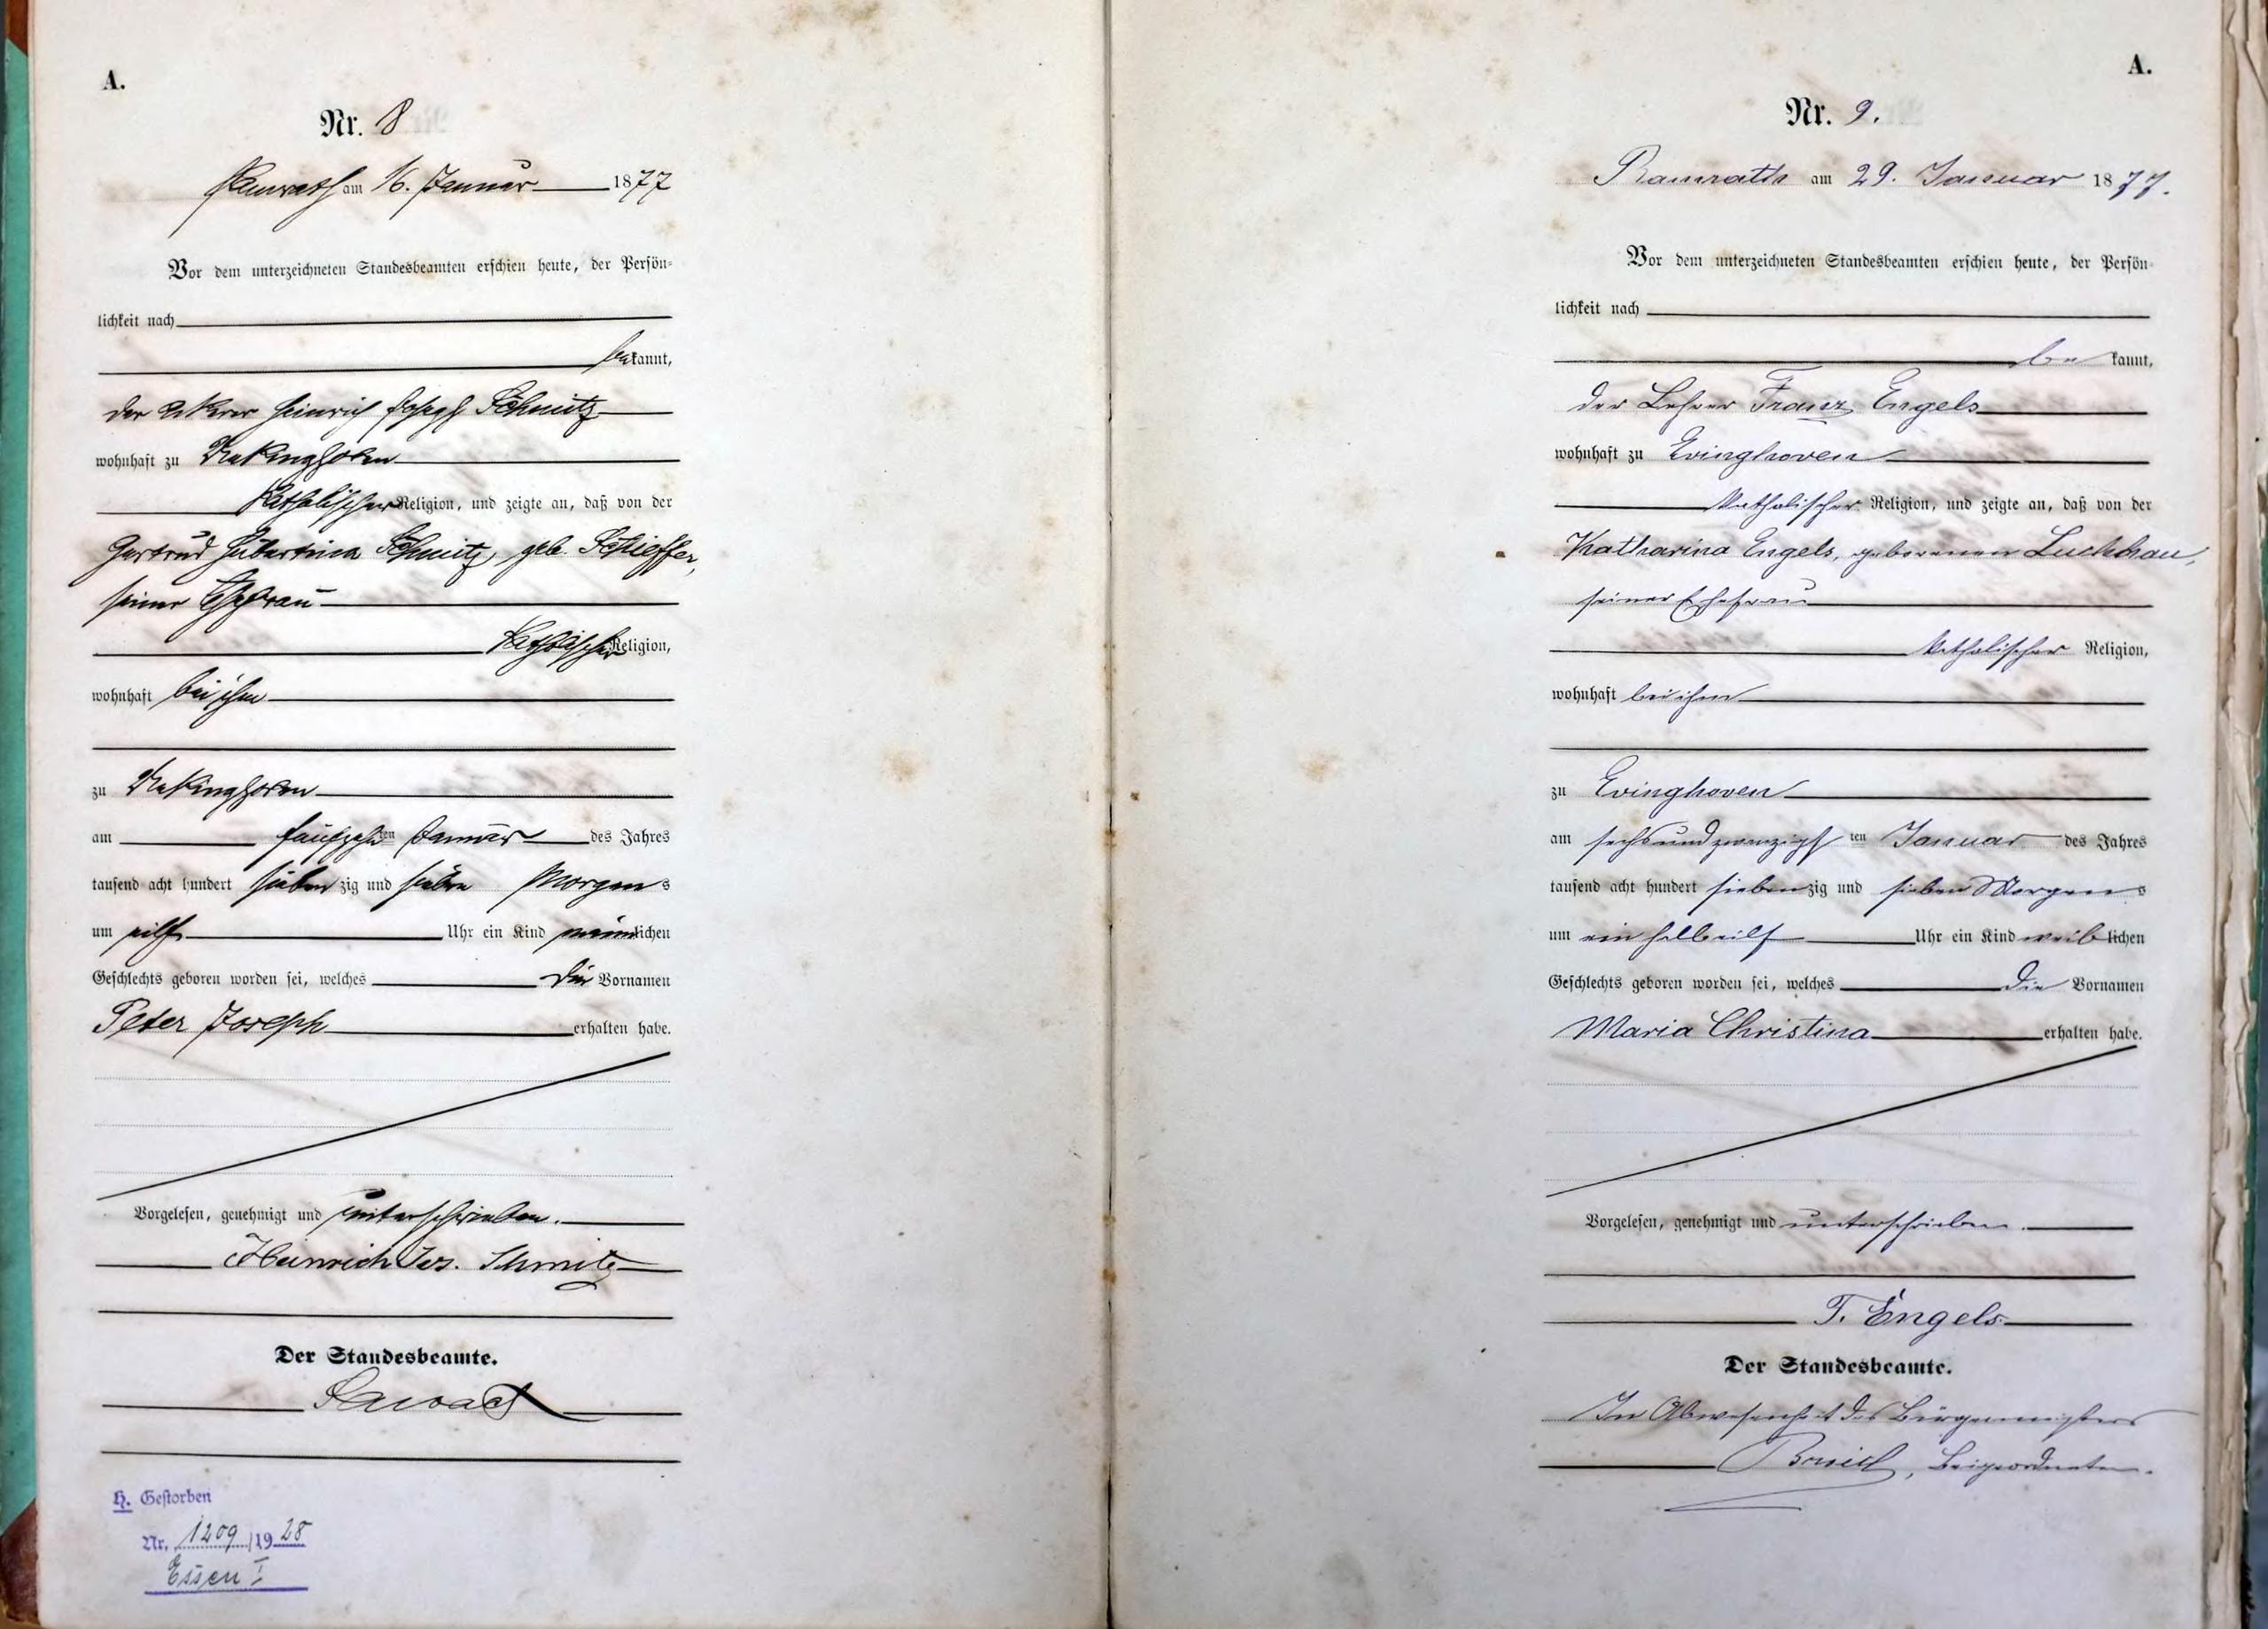 A.
Nr. 8
Ramrath am 16. Januar 1877
Vor dem unterzeichneten Standesbeamten erschien heute, der Persön-
lichkeit nach
bekannt,
der Ackerer Heinrich Joseph Schmitz
wohnhaft zu
katholischer Religion, und zeigte an, daß von der
Gertrud Hubertina Schmitz, geb. Schieffer,
seiner Ehefrau
katholischer Religion,
wohnhaft bei ihm
zu
am fünfzehnten Januar des Jahres
tausend acht hundert siebenzig und sieben Morgens
um eilf Uhr ein Kind männlichen
Geschlechts geboren worden sei, welches die Vornamen
Peter Joseph erhalten habe.
Vorgelesen, genehmigt und unterschrieben.
Heinrich Jos. Schmitz
Der Standesbeamte.
H. Gestorben
Nr. 1209/1928
Essen I
A.
Nr. 9.
Ramrath am 29. Januar 1877.
Vor dem unterzeichneten Standesbeamten erschien heute, der Persön-
lichkeit nach
bekannt,
der Lehrer Franz Engels
wohnhaft zu Evinghoven
katholischer Religion, und zeigte an, daß von der
Katharina Engels, geborenen Luckhau,
seiner Ehefrau
katholischer Religion,
wohnhaft bei ihm
zu Evinghoven
am sechsundzwanzigsten Januar des Jahres
tausend acht hundert siebenzig und sieben Morgens
um ein halb eilf Uhr ein Kind weiblichen
Geschlechts geboren worden sei, welches die Vornamen
Maria Christina erhalten habe.
Vorgelesen, genehmigt und unterschrieben.
F. Engels
Der Standesbeamte.
In Abwesenheit des Bürgermeisters
Beigeordneter.